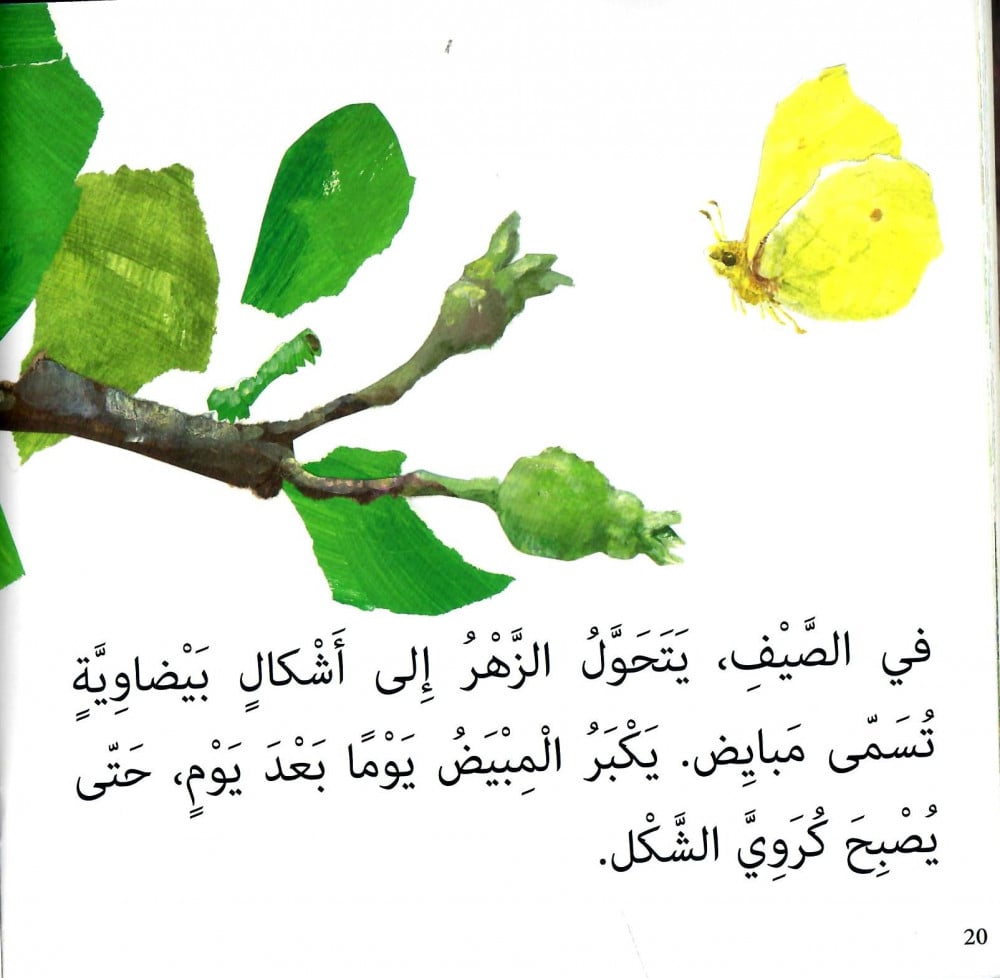 في الصَّيْفِ، يَتَحَوَّلُ الزَّهْرُ إِلى أَشْكالٍ بَيْضاوِيَّةٍ
تُسَمّى مَبايِض. يَكْبَرُ الْمِبْيَضُ يَوْمًا بَعْدَ يَوْمٍ، حَتّى
يُصْبِحَ كُرَوِيَّ الشَّكْل.
20